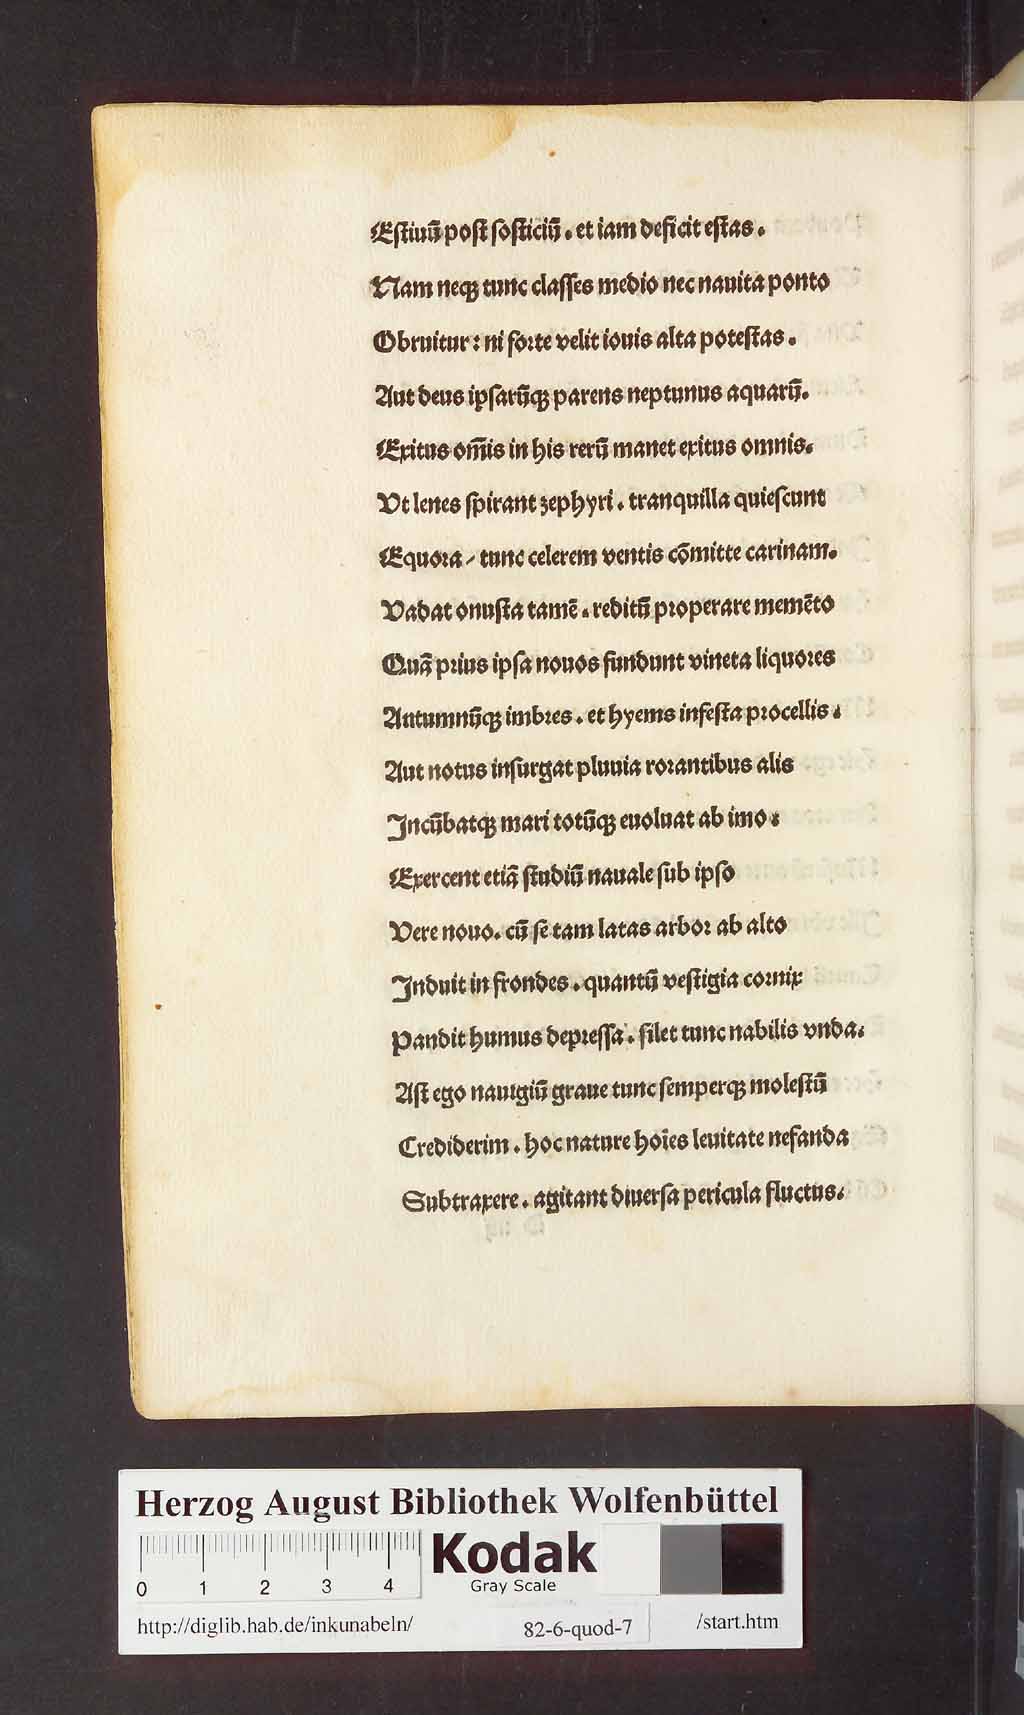 Eſtiuū poſt ſoſticiū. et iam deficit eſtas.
Nam neqꝫ tunc claſſes medio nec nauita ponto
Obruitur: ni forte velit iouis alta poteſtas.
Aut deus ipſarūqꝫ parens neptunus aquarū.
Exitus om̄is in his rerū manet exitus omnis.
Vt lenes ſpirant zephyri. tranquilla quieſcunt
Equora / tunc celerem ventis cōmitte carinam.
Vadat onuſta tamē. reditū properare memēto
Quā prius ipſa nouos fundunt vineta liquores
Autumnūqꝫ imbres. et hyems infeſta procellis.
Aut notus inſurgat pluuia rorantibus alis
Incūbatqꝫ mari totūqꝫ euoluat ab imo.
Exercent etiā ſtudiū nauale ſub ipſo
Vere nouo. cū ſe tam latas arbor ab alto
Induit in frondes. quantū veſtigia cornix
Pandit humus depreſſa. ſilet tunc nabilis vnda.
Aſt ego nauigiū graue tunc ſemperqꝫ moleſtū
Crediderim. hoc nature hoīes leuitate nefanda
Subtraxere. agitant diuerſa pericula fluctus.
Herzog August Bibliothek Wolfenbüttel
0 1 2 3 4
Kodak
Gray Scale
http://diglib.hab.de/inkunabeln/ 82-6-quod-7 /start.htm